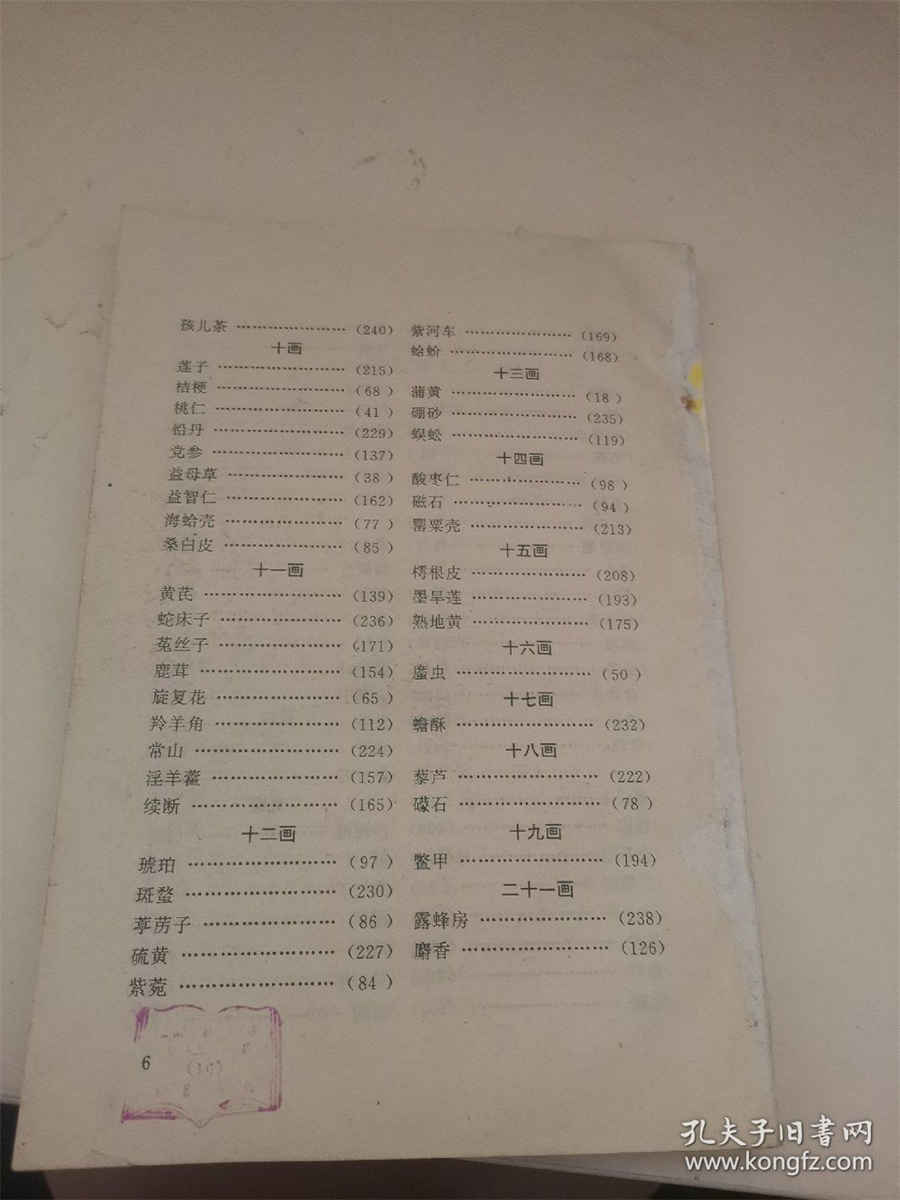 孩儿茶 …………………(240)
十画
莲子 …………………(215)
桔梗 …………………(68)
桃仁 …………………(41)
铅丹 …………………(229)
党参 …………………(137)
益母草 …………………(38)
益智仁 …………………(162)
海蛤壳 …………………(77)
桑白皮 …………………(85)
十一画
黄芪 …………………(139)
蛇床子 …………………(236)
菟丝子 …………………(171)
鹿茸 …………………(154)
旋复花 …………………(65)
羚羊角 …………………(112)
常山 …………………(224)
淫羊藿 …………………(157)
续断 …………………(165)
十二画
琥珀 …………………(97)
斑蝥 …………………(230)
葶苈子 …………………(86)
硫黄 …………………(227)
紫菀 …………………(84)
紫河车 …………………(169)
蛤蚧 …………………(168)
十三画
蒲黄 …………………(18)
硼砂 …………………(235)
蜈蚣 …………………(119)
十四画
酸枣仁 …………………(98)
磁石 …………………(94)
罂粟壳 …………………(213)
十五画
樗根皮 …………………(208)
墨旱莲 …………………(193)
熟地黄 …………………(175)
十六画
䗪虫 …………………(50)
十七画
蟾酥 …………………(232)
十八画
藜芦 …………………(222)
礞石 …………………(78)
十九画
鳖甲 …………………(194)
二十一画
露蜂房 …………………(238)
麝香 …………………(126)
6
孔夫子旧書网
www.kongfz.com